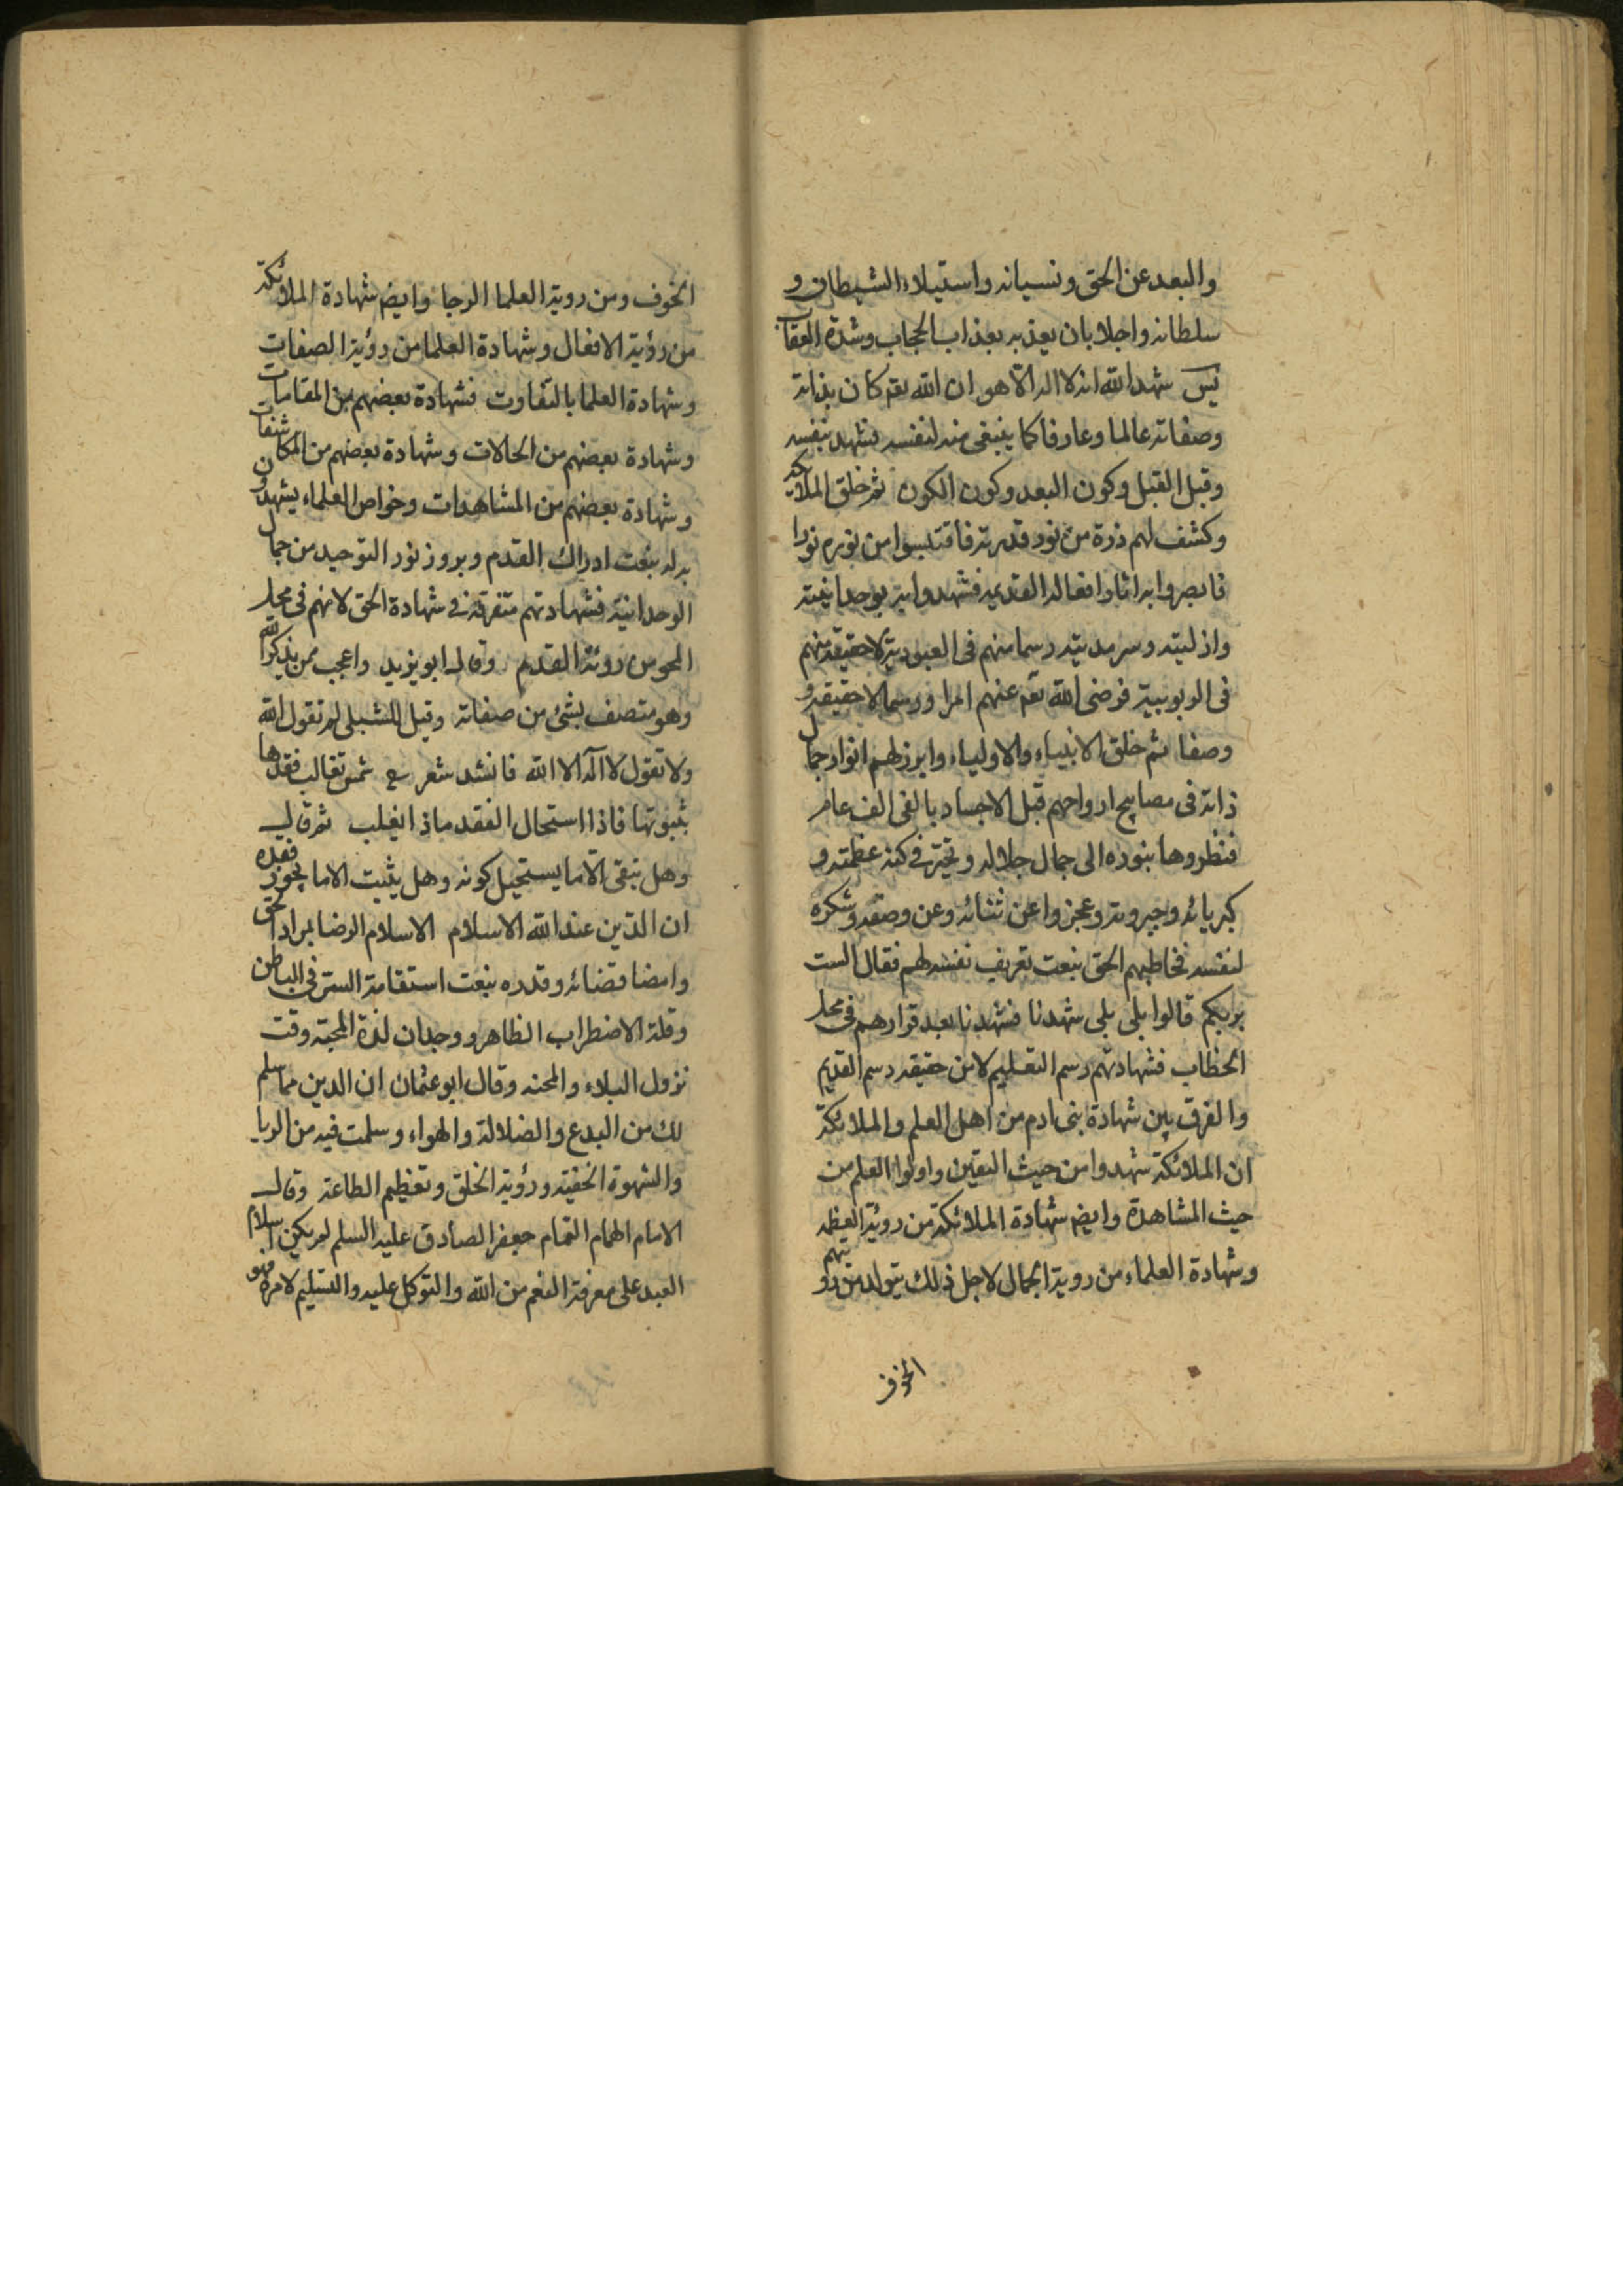 والبعد عن الحق ونسيانه واستيلاء الشيطان و
سلطانه واجلا بان يعذبه بعذاب الحجاب وشدة العقاب
شهد الله انه لا اله الا هو ان الله تعم كان بذاته
وصفاته عالما وعارفا كما ينبغى منه لنفسه فشهد بنفسه
وقبل القبل وكون البعد وكون الكون ثم خلق الملائكه
وكشف لهم ذرة من نور قدرته فاقتبسوا من نوره نورا
فابصروا به اثار افعاله القديمه فشهدوا به بوحدانيته
وازليته وسرمديته رسما منهم فى العبودية لا حقيقة منهم
فى الربوبية فرضى الله تعم عنهم امرا ورسما لا حقيقه و
وصفا ثم خلق الانبياء والاولياء وابرز لهم انوار جمال
ذاته فى مصابيح ارواحهم قبل الاجساد بالفى الف عام
فنظروها بنوره الى جمال جلاله وتحيروا فى كنه عظمته و
كبريائه وجبروته وعجزوا عن ثنائه وعن وصفه وشكره
لنفسه فخاطبهم الحق بنعت تعريف نفسه لهم فقال الست
بربكم قالوا بلى بلى شهدنا فشهدنا بعد قرارهم فى محل
الخطاب فشهادتهم رسم التعليم لا من حقيقه رسم القديم
والفرق بين شهادة بنى ادم من اهل العلم والملائكة
ان الملائكة شهدوا من حيث اليقين واولوا العلم من
حيث المشاهدة وايضم شهادة الملائكة من روية العظمه
وشهادة العلماء من روية الجمال لاجل ذلك يتولد من رويتهم
الخوف
الخوف ومن روية العلما الرجا وايضم شهادة الملائكة
من رؤية الافعال وشهادة العلما من رؤية الصفات
وشهادة العلما بالتفاوت فشهادة بعضهم من المقامات
وشهادة بعضهم من الحالات وشهادة بعضهم من المكاشفات
وشهادة بعضهم من المشاهدات وخواص العلماء يشهدون
به له بنعت ادراك القدم وبروز نور التوحيد من جمال
الوحدانية فشهادتهم متفرقة فى شهادة الحق لانهم فى محل
المحو من روية القدم وقال ابو يزيد واعجب ممن يذكر الله
وهو متصف بشئ من صفاته وقيل للشبلى لم تقول الله
ولا تقول لا اله الا الله فانشد شعر ع فقدها
بثبوتها فاذا استحال الفقد ماذا يغلب ثم قال
وهل تبقى الا ما يستحيل كونه وهل يثبت الا ما يجوز فقده
ان الدين عند الله الاسلام الاسلام الرضا بمراد الحق
وامضا قضائه وقدره بنعت استقامة السر فى الباطن
وقلة الاضطراب الظاهر ووجدان لذة المحبة وقت
نزول البلاء والمحنه وقال ابو عثمان ان الدين ما سلم
لك من البدع والضلالة والهواء وسلمت فيه من الريا
والشهوة الخفية ورؤية الخلق وتعظيم الطاعة وقال
الامام الهمام التمام جعفر الصادق عليه السلم لم يكن اسلام
العبد على معرفة النعم من الله والتوكل عليه والتسليم لامره فهو